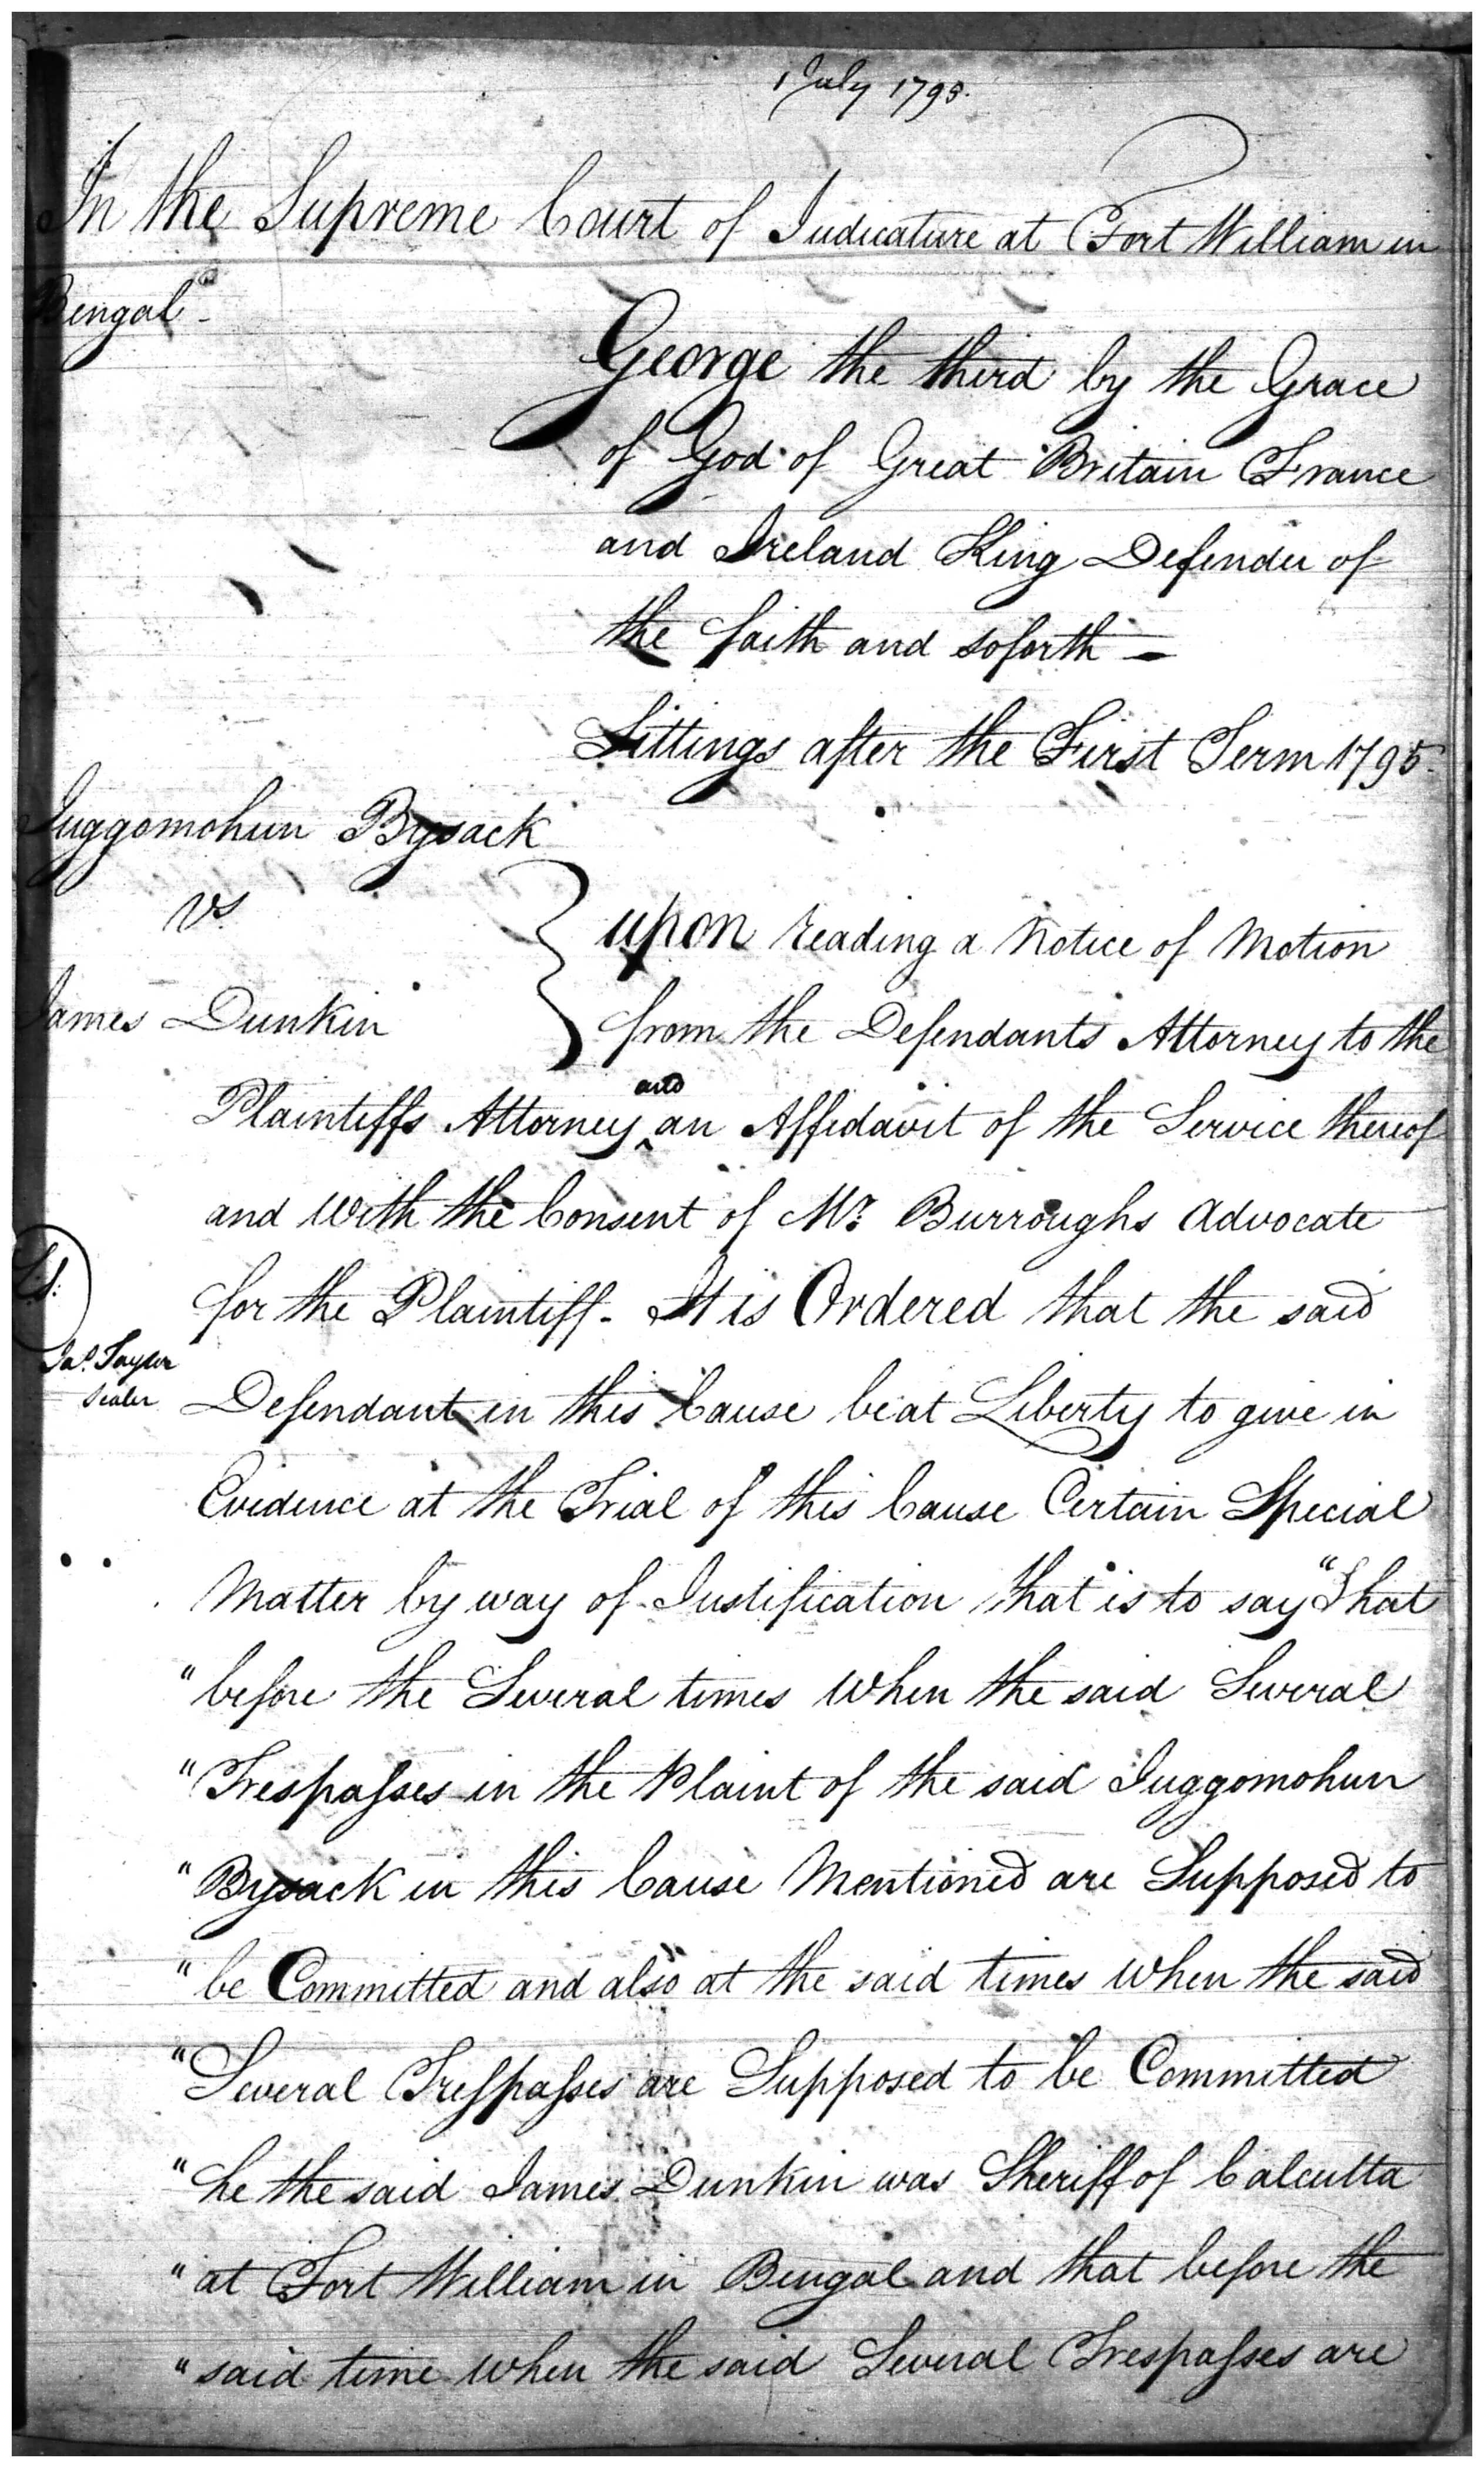 1 July 1795.
In the Supreme Court of Judicature at Fort William in
Bengal
George the third by the Grace
of God of Great Britain France
and Ireland King Defender of
the faith and soforth —
Sittings after the First Term 1795.
Juggomohun Bysack
vs
James Dunkin
upon reading a Notice of Motion
from the Defendants Attorney to the
Plaintiffs Attorney and an Affidavit of the Service thereof
and with the Consent of Mr. Burroughs Advocate
for the Plaintiff - It is Ordered that the said
L.S.
Jas. Taylor
Sealer
Defendant in this Cause be at Liberty to give in
Evidence at the Trial of this Cause Certain Special
Matter by way of Justification that is to say "That
"before the Several times when the said Several
"Trespasses in the Plaint of the said Juggomohun
"Bysack in this Cause Mentioned are Supposed to
"be Committed and also at the said times when the said
"Several Trespasses are Supposed to be Committed
"he the said James Dunkin was Sheriff of Calcutta
"at Fort William in Bengal and that before the
"said time when the said Several Trespasses are